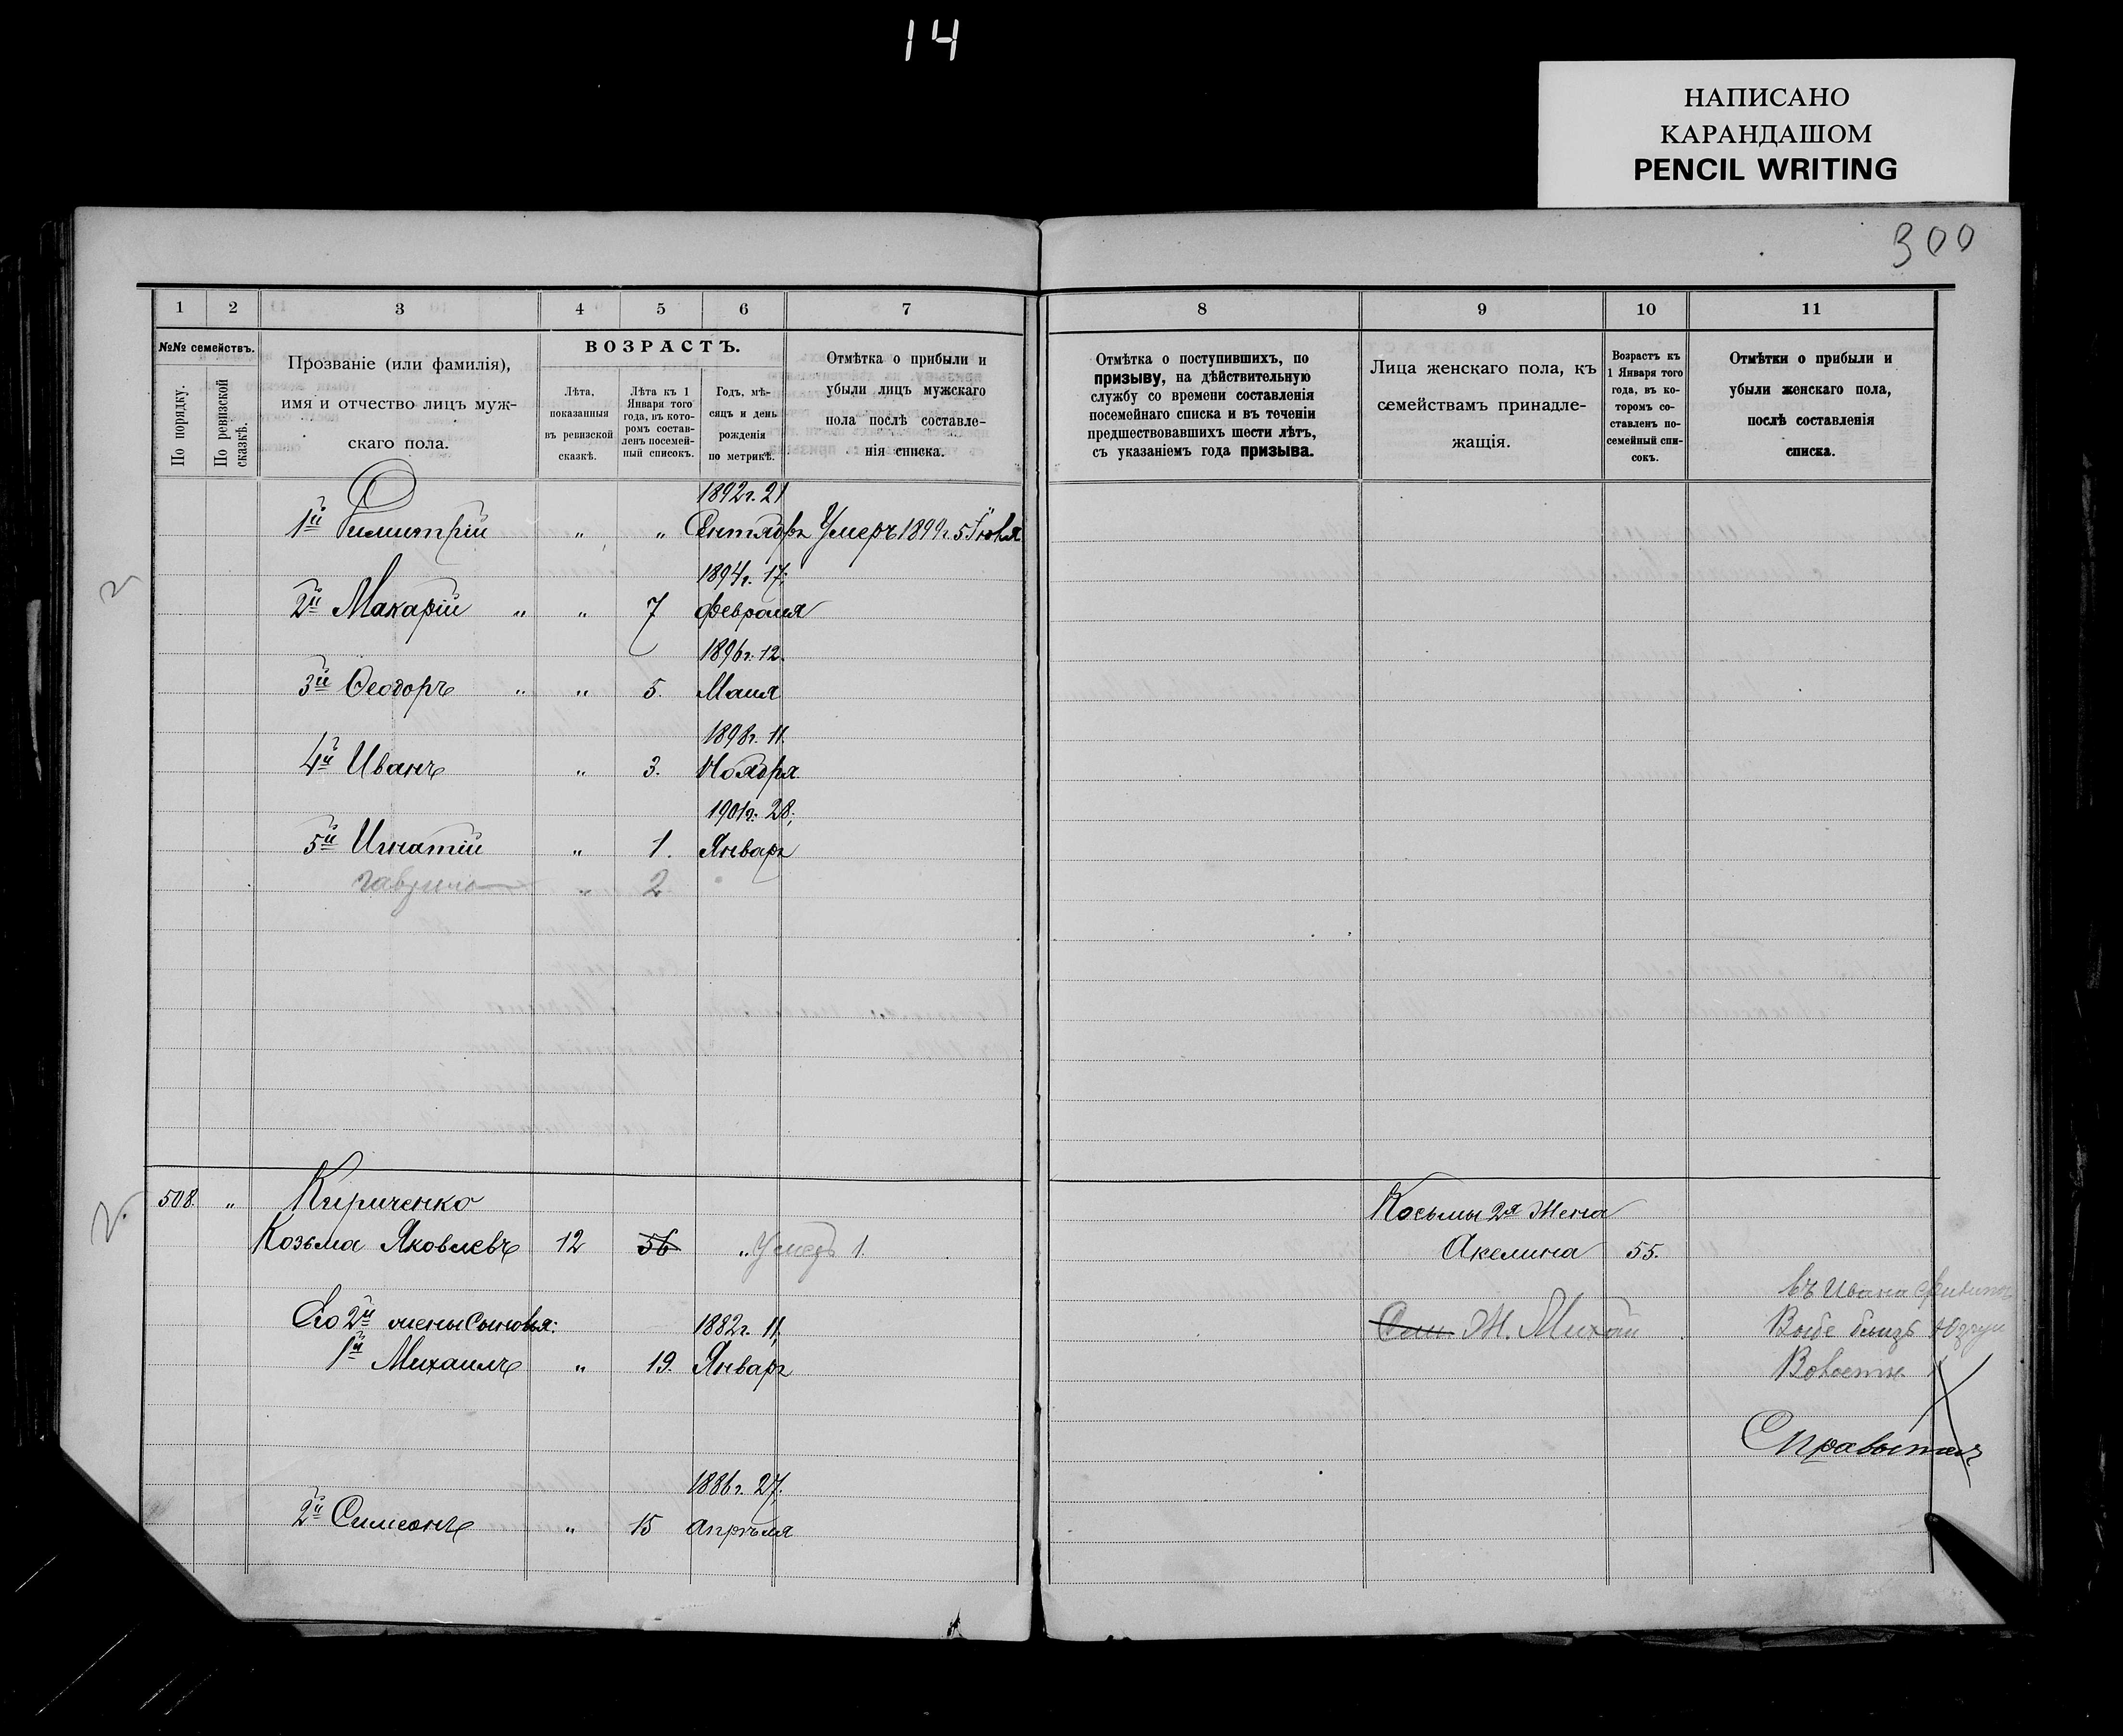 14
НАПИСАНО
КАРАНДАШОМ
PENCIL WRITING
300
1 2 3 4 5 6 7 8 9 10 11
№№ семействъ.
По порядку.
По ревизской сказкѣ.
Прозваніе (или фамилія),
имя и отчество лицъ муж-
скаго пола.
ВОЗРАСТЪ.
Лѣта,
показанныя
въ ревизской
сказкѣ.
Лѣта къ 1
Января того
года, въ кото-
ромъ состав-
ленъ посемей-
ный список.
Годъ, мѣ-
сяцъ и день
рожденія
по метрикѣ.
Отмѣтка о прибыли и
убыли лицъ мужскаго
пола послѣ составле-
нія списка.
Отмѣтка о поступившихъ, по
призыву, на дѣйствительную
службу со времени составленія
посемейнаго списка и въ теченіи
предшествовавшихъ шести лѣтъ,
съ указаніемъ года призыва.
Лица женскаго пола, къ
семействамъ принадле-
жащія.
Возрастъ къ
1 Января того
года, въ ко-
торомъ со-
ставленъ по-
семейный спи-
сокъ.
Отмѣтки о прибыли и
убыли женскаго пола,
послѣ составленія
списка.
1892г. 21
1й Димитрій " " Сентябр Умеръ 1899г 5 Іюля
1894г. 17.
2й Макарій " " 7 февраля
1896г. 12.
3й Ѳеодоръ " " 5. Маия
1898г. 11.
4й Иванъ " 3. Ноября
1901г. 28.
5й Игнатій " 1. Январ
гаврило " 2
508. " Кириченко Косьмы 2я Жена
Козьма Яковлевъ 12 56 " Умеръ 1. Акелина 55.
въ Ивана
Его 2й жены сыновья: 1882г. 11. Ж. Михаи
1й Михаилъ " 19. Январ
1886г. 27.
2й Симеонъ " 15 апрѣля